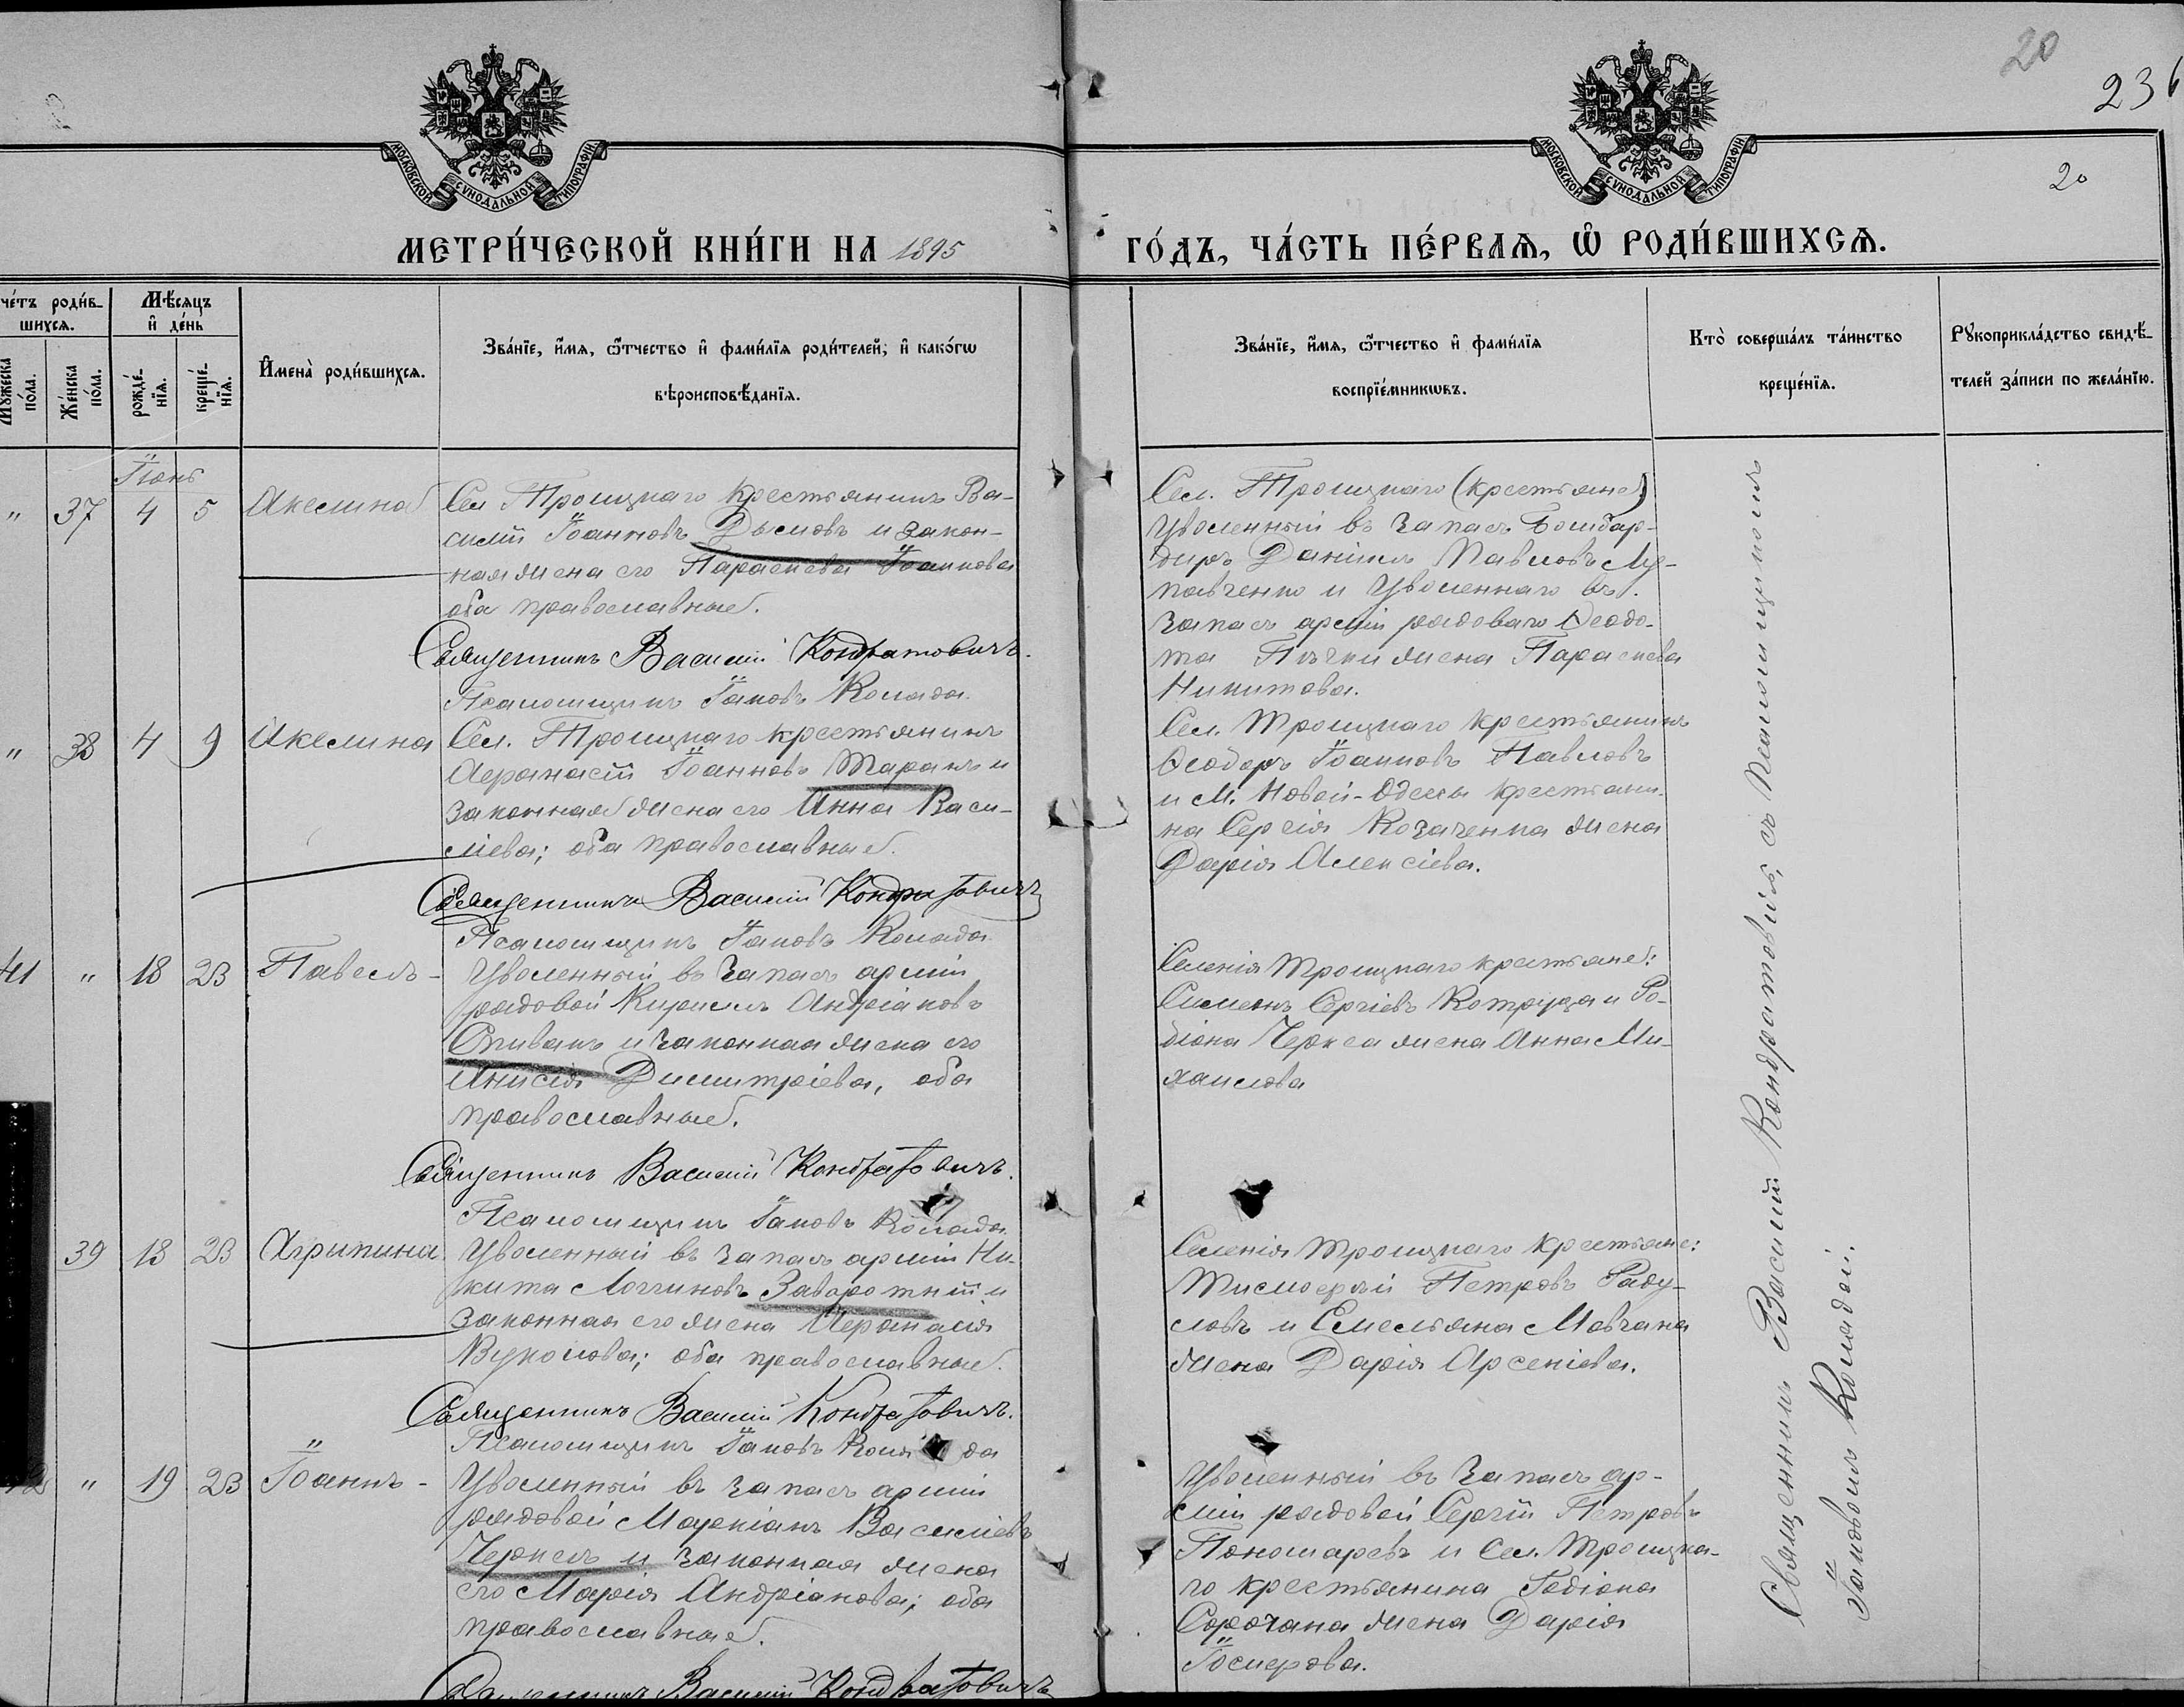 20
236
20
МОСКОВСКОЙ СѴНОДАЛЬНОЙ ТИПОГРАФІИ
МОСКОВСКОЙ СѴНОДАЛЬНОЙ ТИПОГРАФІИ
МЕТРИ́ЧЕСКОЙ КНИ́ГИ НА 1895
ГО́ДЪ, ЧА́СТЬ ПЕ́РВАѦ, Ѡ҆ РОДИ́ВШИХСѦ.
че́тъ роди́в-
шихсѧ.
Мѣ́сѧцъ
и҆ де́нь
Мꙋ́жеска
по́ла.
Же́нска
по́ла.
рожде́-
нїѧ.
креще́-
нїѧ.
И҆мена̀ роди́вшихсѧ.
Зва́нїе, и҆́мѧ, ѻ҆́тчество и҆ фами́лїѧ роди́телей; и҆ како́гѡ
вѣроисповѣ́данїѧ.
Зва́нїе, и҆́мѧ, ѻ҆́тчество и҆ фами́лїѧ
воспрїе́мникѡвъ.
Кто̀ соверша́лъ та́инство
креще́нїѧ.
Рꙋкоприкла́дство свидѣ́-
телей за́писи по жела́нїю.
Іюнь
" 37 4 5 Акелина
Сел Троицкаго крестьянинъ Ва-
силій Іоанновъ Дымовъ и закон-
ная жена его Параскева Іоаннова
оба православные.
Священникъ Василій Кондратовичъ.
Псаломщикъ Іаковъ Коляда
Сел. Троицкаго (крестьяне)
Уволенный въ запасъ Бомбар-
диръ Даніилъ Павловъ Лу-
павченко и Уволеннаго въ
запасъ арміи рядоваго Ѳеодо-
та жена Параскева
Никитова.
" 38 4 9 Акелина
Сел. Троицкаго крестьянинъ
Аѳанасій Іоанновъ Таранъ и
законная жена его Анна Васи-
ліева; оба православные.
Священникъ Василій Кондратовичъ
Псаломщикъ Іаковъ Коляда
Сел. Троицкаго крестьянинъ
Ѳеодоръ Іоанновъ Павловъ
и М. Новой-Одессы крестьяни-
на Сергія Козаченка жена
Дарія Алексіева.
41 " 18 23 Павелъ -
Уволенный въ запасъ арміи
рядовой Кириллъ Андріановъ
Сливанъ и законная жена его
Анисія Димитріева, оба
православные.
Священникъ Василій Кондратовичъ.
Псаломщикъ Іаковъ Коляда
Селенія Троицкаго крестьяне:
Симеонъ Сергіевъ Котруца и Ро-
діона Черкеа жена Анна Ми-
хаилова
39 18 23 Агрипина
Уволенный въ запасъ арміи Ни-
кита Логгиновъ Заворотній и
законная его жена Аѳанасія
Вуколова; оба православные.
Священникъ Василій Кондратовичъ.
Псаломщикъ Іаковъ Коляда
Селенія Троицкаго крестьяне:
Тимоѳей Петровъ Раду-
ловъ и Емельяна Мовчана
жена Дарія Арсеніева.
" 19 23 Іоаннъ -
Уволенный въ запасъ арміи
рядовой Маркіанъ Василіевъ
Черкелъ и законная жена
его Марія Андріанова; оба
православные.
Священникъ Василій Кондратовичъ
Уволенный въ запасъ ар-
міи рядовой Сергій Петровъ
Пономаревъ и Сел. Троицка-
го крестьянина Родіона
Сорочана жена Дарія
Священникъ Василій Кондратовичъ, съ Псаломщикомъ
Іаковомъ Колядой.